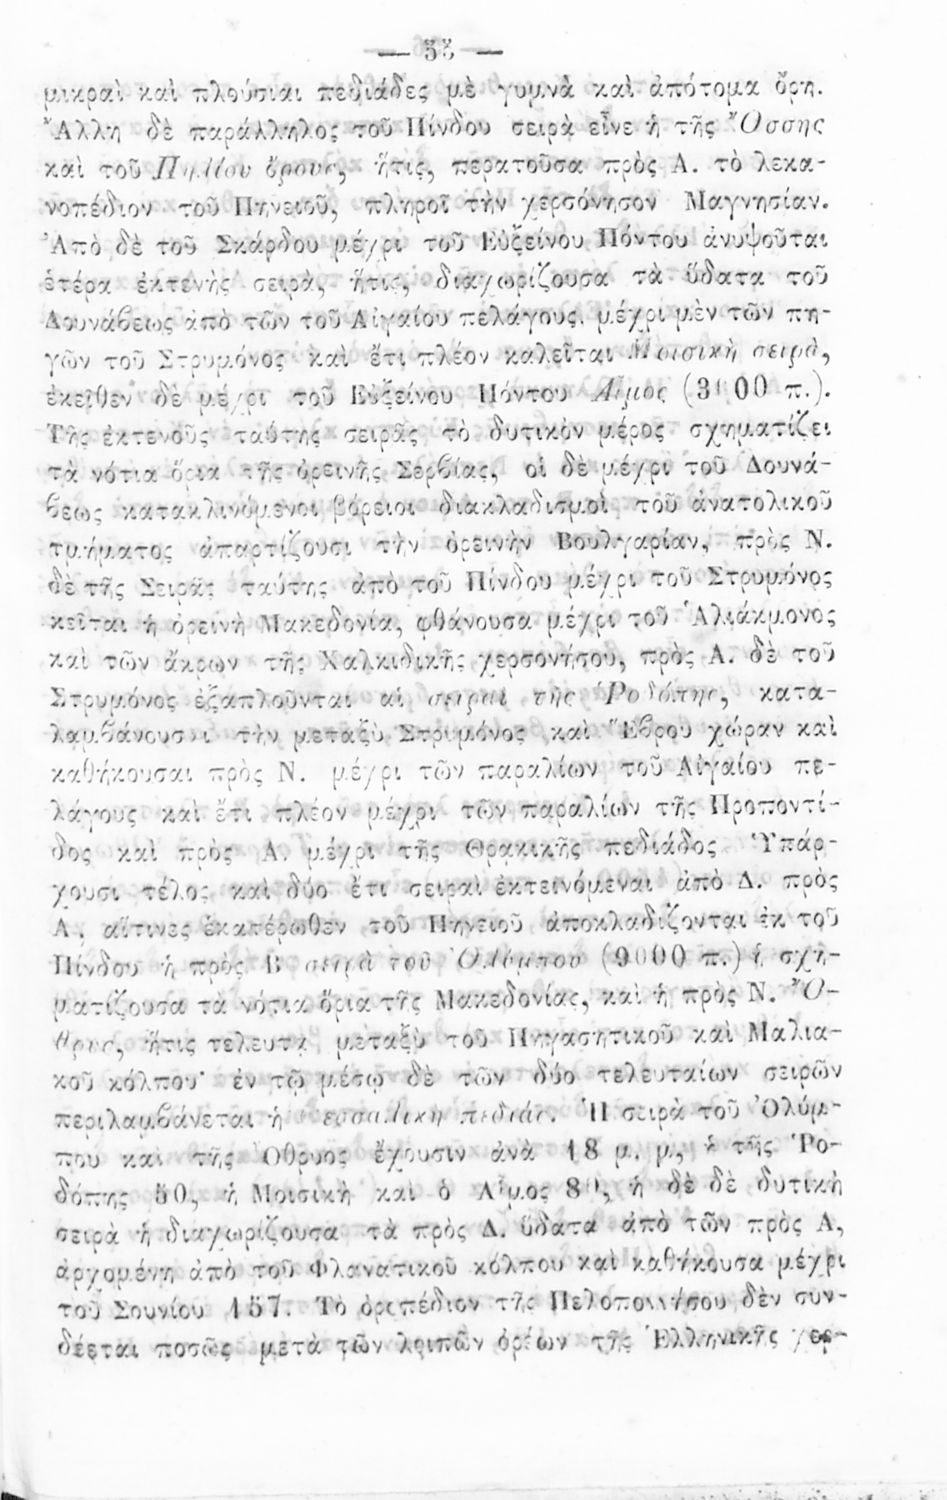 — 55 —
μικραὶ καὶ πλούσιαι πεδιάδες μὲ γυμνὰ καὶ ἀπότομα ὄρη.
Ἄλλη δὲ παράλληλος τοῦ Πίνδου σειρὰ εἶνε ἡ τῆς Ὄσσης
καὶ τοῦ Πηλίου ὄρους, ἥτις, περατοῦσα πρὸς Α. τὸ λεκα-
νοπέδιον τοῦ Πηνειοῦ, πληροῖ τὴν χερσόνησον Μαγνησίαν.
Ἀπὸ δὲ τοῦ Σκάρδου μέχρι τοῦ Εὐξείνου Πόντου ἀνυψοῦται
ἑτέρα ἐκτενὴς σειρὰ, ἥτις, διαχωρίζουσα τὰ ὕδατα τοῦ
Δουνάβεως ἀπὸ τῶν τοῦ Αἰγαίου πελάγους, μέχρι μὲν τῶν πη-
γῶν τοῦ Στρυμόνος καὶ ἔτι πλέον καλεῖται Μοισικὴ σειρὰ,
ἐκεῖθεν δὲ μέχρι τοῦ Εὐξείνου Πόντου Αἷμος (3000 π.).
Τῆς ἐκτενοῦς ταύτης σειρᾶς τὸ δυτικὸν μέρος σχηματίζει
τὰ νότια ὅρια τῆς ὀρεινῆς Σερβίας, οἱ δὲ μέχρι τοῦ Δουνά-
βεως κατακλινόμενοι βόρειοι διακλαδισμοὶ τοῦ ἀνατολικοῦ
τμήματος ἀπαρτίζουσι τὴν ὀρεινὴν Βουλγαρίαν, πρὸς Ν.
δὲ τῆς Σειρᾶς ταύτης ἀπὸ τοῦ Πίνδου μέχρι τοῦ Στρυμόνος
κεῖται ἡ ὀρεινὴ Μακεδονία, φθάνουσα μέχρι τοῦ Ἁλιάκμονος
καὶ τῶν ἄκρων τῆς Χαλκιδικῆς χερσονήσου, πρὸς Α. δὲ τοῦ
Στρυμόνος ἐξαπλοῦνται αἱ σειραὶ τῆς Ῥοδόπης, κατα-
λαμβάνουσαι τὴν μεταξὺ Στρυμόνος καὶ Ἕβρου χώραν καὶ
καθήκουσαι πρὸς Ν. μέχρι τῶν παραλίων τοῦ Αἰγαίου πε-
λάγους καὶ ἔτι πλέον μέχρι τῶν παραλίων τῆς Προποντί-
δος καὶ πρὸς Α. μέχρι τῆς Θρακικῆς πεδιάδος. Ὑπάρ-
χουσι τέλος καὶ δύο ἔτι σειραὶ ἐκτεινόμεναι ἀπὸ Δ. πρὸς
Α, αἵτινες ἑκατέρωθεν τοῦ Πηνειοῦ ἀποκλαδίζονται ἐκ τοῦ
Πίνδου ἡ πρὸς Β σειρὰ τοῦ Ὀλύμπου (9000 π.) ἡ σχη-
ματίζουσα τὰ νότια ὅρια τῆς Μακεδονίας, καὶ ἡ πρὸς Ν. Ὄ-
θρυς, ἥτις τελευτᾷ μεταξὺ τοῦ Πηγασητικοῦ καὶ Μαλια-
κοῦ κόλπου· ἐν τῷ μέσῳ δὲ τῶν δύο τελευταίων σειρῶν
περιλαμβάνεται ἡ Θεσσαλικὴ πεδιάς. Ἡ σειρὰ τοῦ Ὀλύμ-
που καὶ τῆς Ὄθρυος ἔχουσιν ἀνὰ 18 μ. μ, ἡ τῆς Ῥο-
δόπης 50, ἡ Μοισικὴ καὶ ὁ Αἷμος 80, ἡ δὲ δὲ δυτικὴ
σειρὰ ἡ διαχωρίζουσα τὰ πρὸς Δ. ὕδατα ἀπὸ τῶν πρὸς Α,
ἀρχομένη ἀπὸ τοῦ Φλανατικοῦ κόλπου καὶ καθήκουσα μέχρι
τοῦ Σουνίου 157. Τὸ ὀροπέδιον τῆς Πελοποννήσου δὲν συν-
δέεται ποσῶς μετὰ τῶν λοιπῶν ὀρέων τῆς Ἑλληνικῆς χερ-